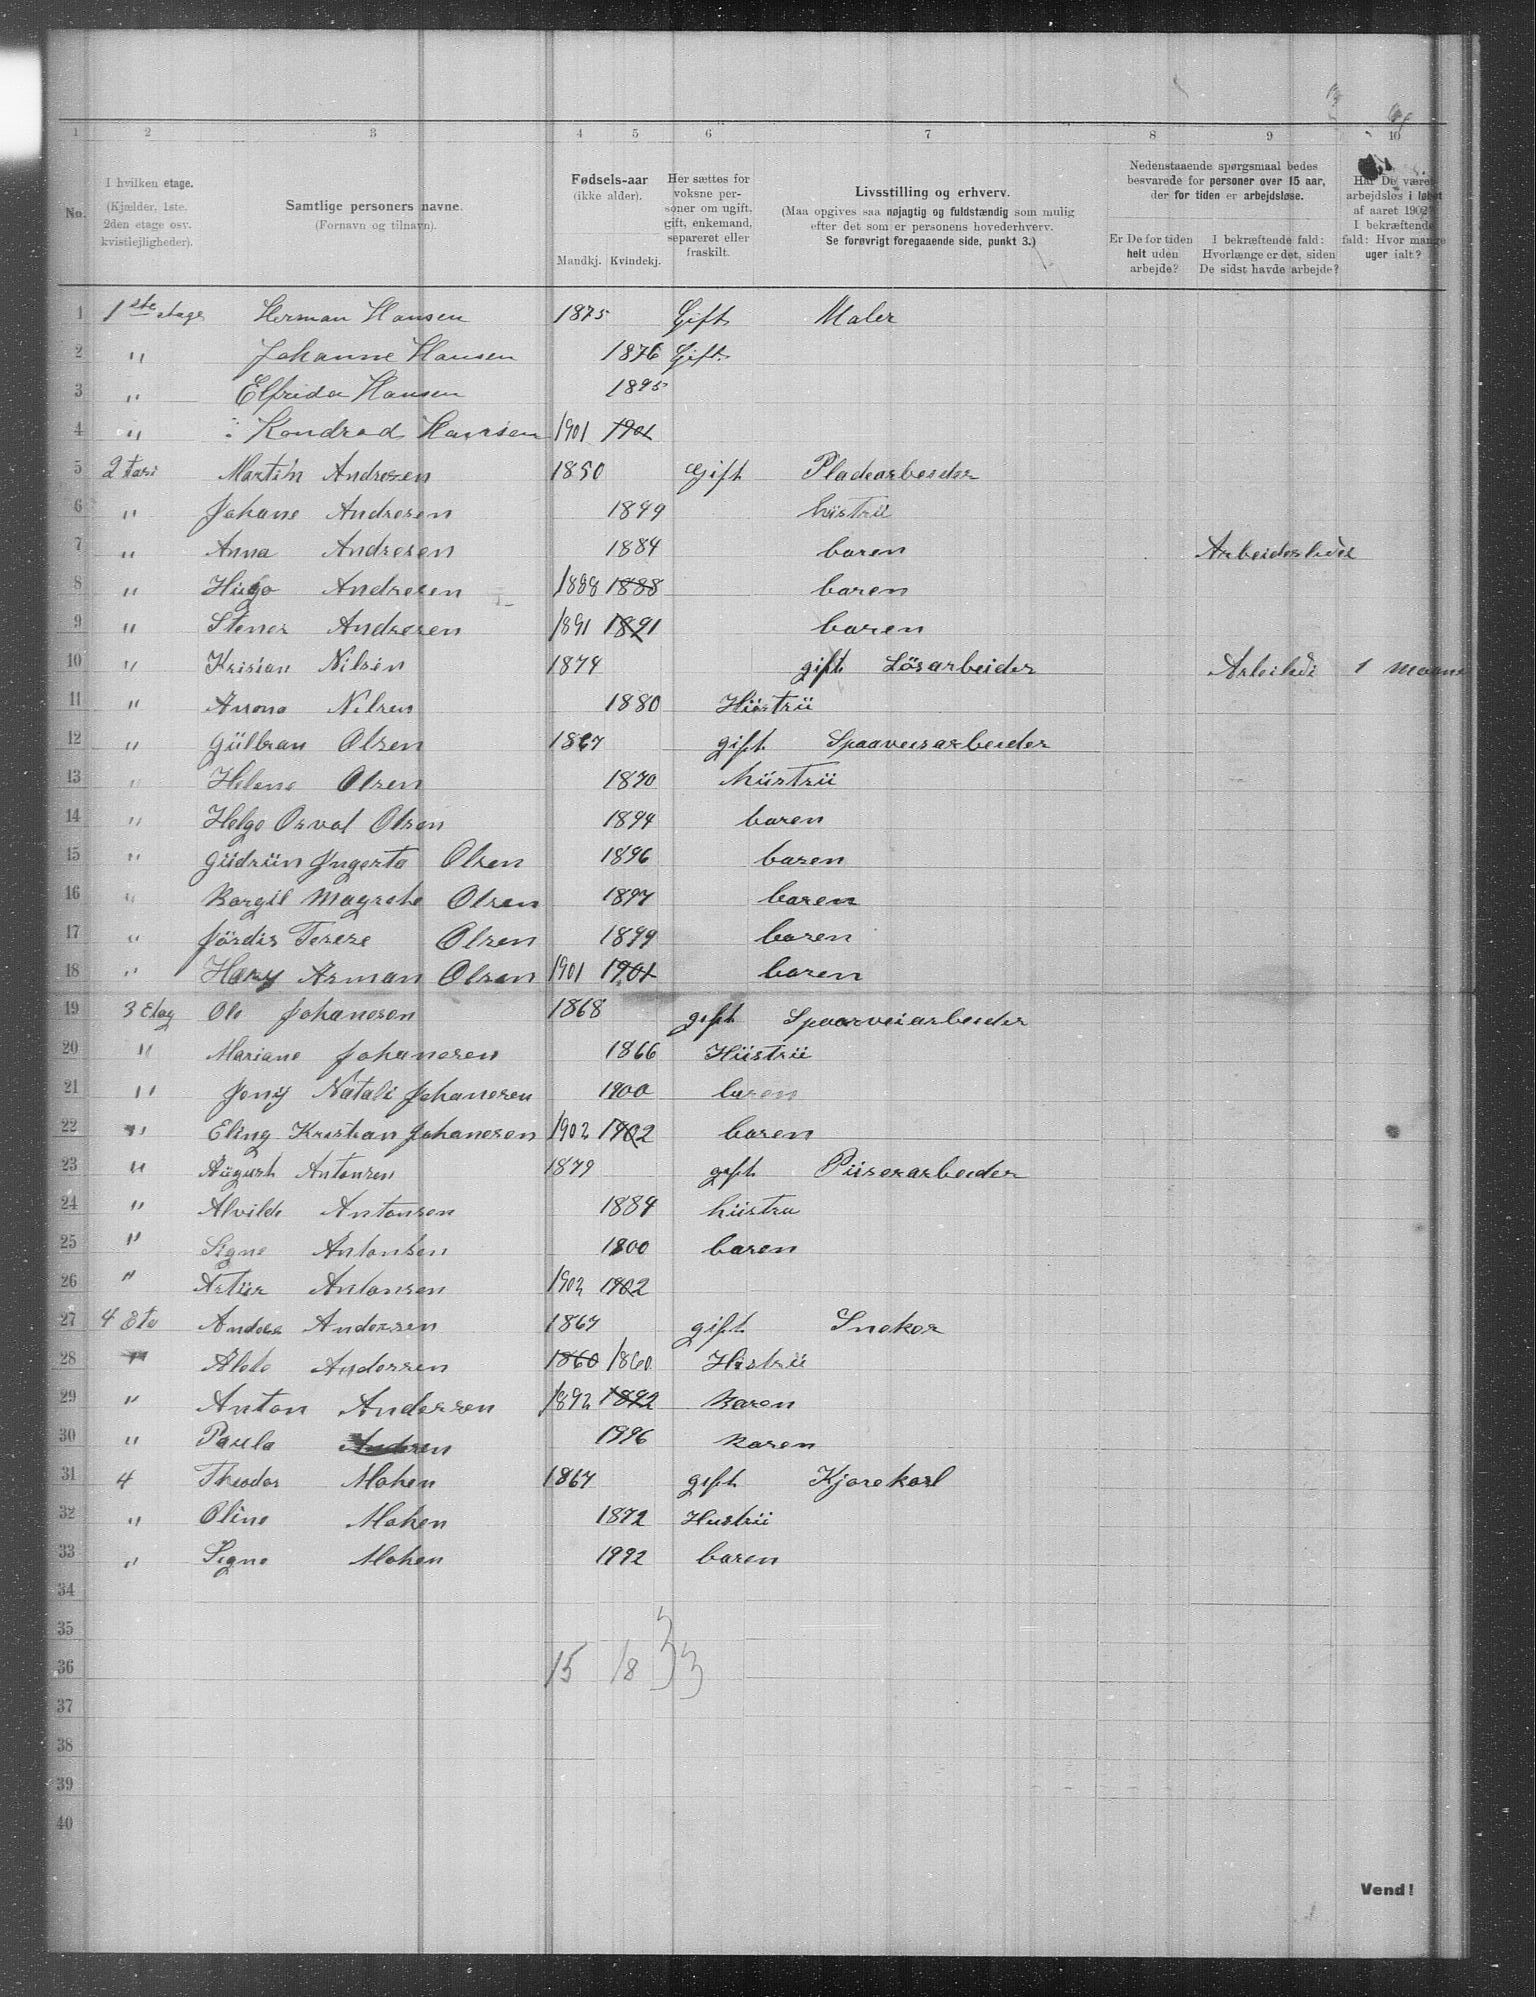 1 2 3 4 5 6 7 8 9 10
No. I hvilken etage. (Kjælder, 1ste. 2den etage osv. kvistlejligheder). Samtlige personers navne. (Fornavn og tilnavn). Fødsels-aar (ikke alder). Mandkj. Kvindekj. Her sættes for voksne personer om ugift, gift, enkemand, separeret eller fraskilt. Livsstilling og erhverv. (Maa opgives saa nøjagtig og fuldstændig som mulig efter det som er personens hovederhverv. Se forøvrigt foregaaende side, punkt 3.) Nedenstaaende spørgsmaal bedes besvarede for personer over 15 aar, der for tiden er arbejdsløse. Er De for tiden helt uden arbejde? I bekræftende fald: Hvorlænge er det, siden De sidst havde arbejde? Har De været arbejdsløs i løbet af aaret 1902? I bekræftende fald: Hvor mange uger ialt?
1 1ste etage Herman Hansen 1875 Gift Maler
2 " Johanne Hansen 1876 Gift
3 " Elfrida Hansen 1895
4 " Kondrad Hansen 1901 1901
5 2 Martin Andresen 1850 Gift Pladearbeider
6 " Johane Andresen 1849 hüstrü
7 " Anna Andresen 1884 baren
8 " Hügo Andresen 1888 1888 baren
9 " Stener Andresen 1891 1891 baren
10 " Krisian Nilsen 1874 gift Lösarbeider 1
11 " Nilsen 1880 Hüstrü
12 " Gülbran Olsen 1867 gift Spaaveisarbeider
13 " Helene Olsen 1870 Hüstrü
14 " Helge Osval Olsen 1894 baren
15 " Güdrün Ingerta Olsen 1896 baren
16 " Borgil Magrete Olsen 1897 baren
17 " Jördis Terese Olsen 1899 baren
18 " Hary Arman Olsen 1901 1901 baren
19 3 Etag Ole Johanesen 1868 gift Spaarveiarbeider
20 " Mariane Johanesen 1866 Hüstrü
21 " Jeny Natali Johanesen 1900 baren
22 " Eling Kristian Johanesen 1902 1902 baren
23 " Aügust Antonsen 1879 gift Püserarbeider
24 " Alvilde Antonsen 1884 hüstru
25 " Signe Antonsen 1900 baren
26 " Artür Antonsen 1902 1902
27 4 Eta Anders Andersen 1867 gift Sneker
28 " Andersen 1860 1860 Hüstrü
29 " Anton Andersen 1892 1892 Baren
30 " Paula 1896 Baren
31 4 Theodor Mohen 1867 gift Kjørekarl
32 " Oline Mohen 1872 Hustrü
33 " Signe Mohen 1992 baren
34
35
36 15 18 33
37
38
39
40
Vend!